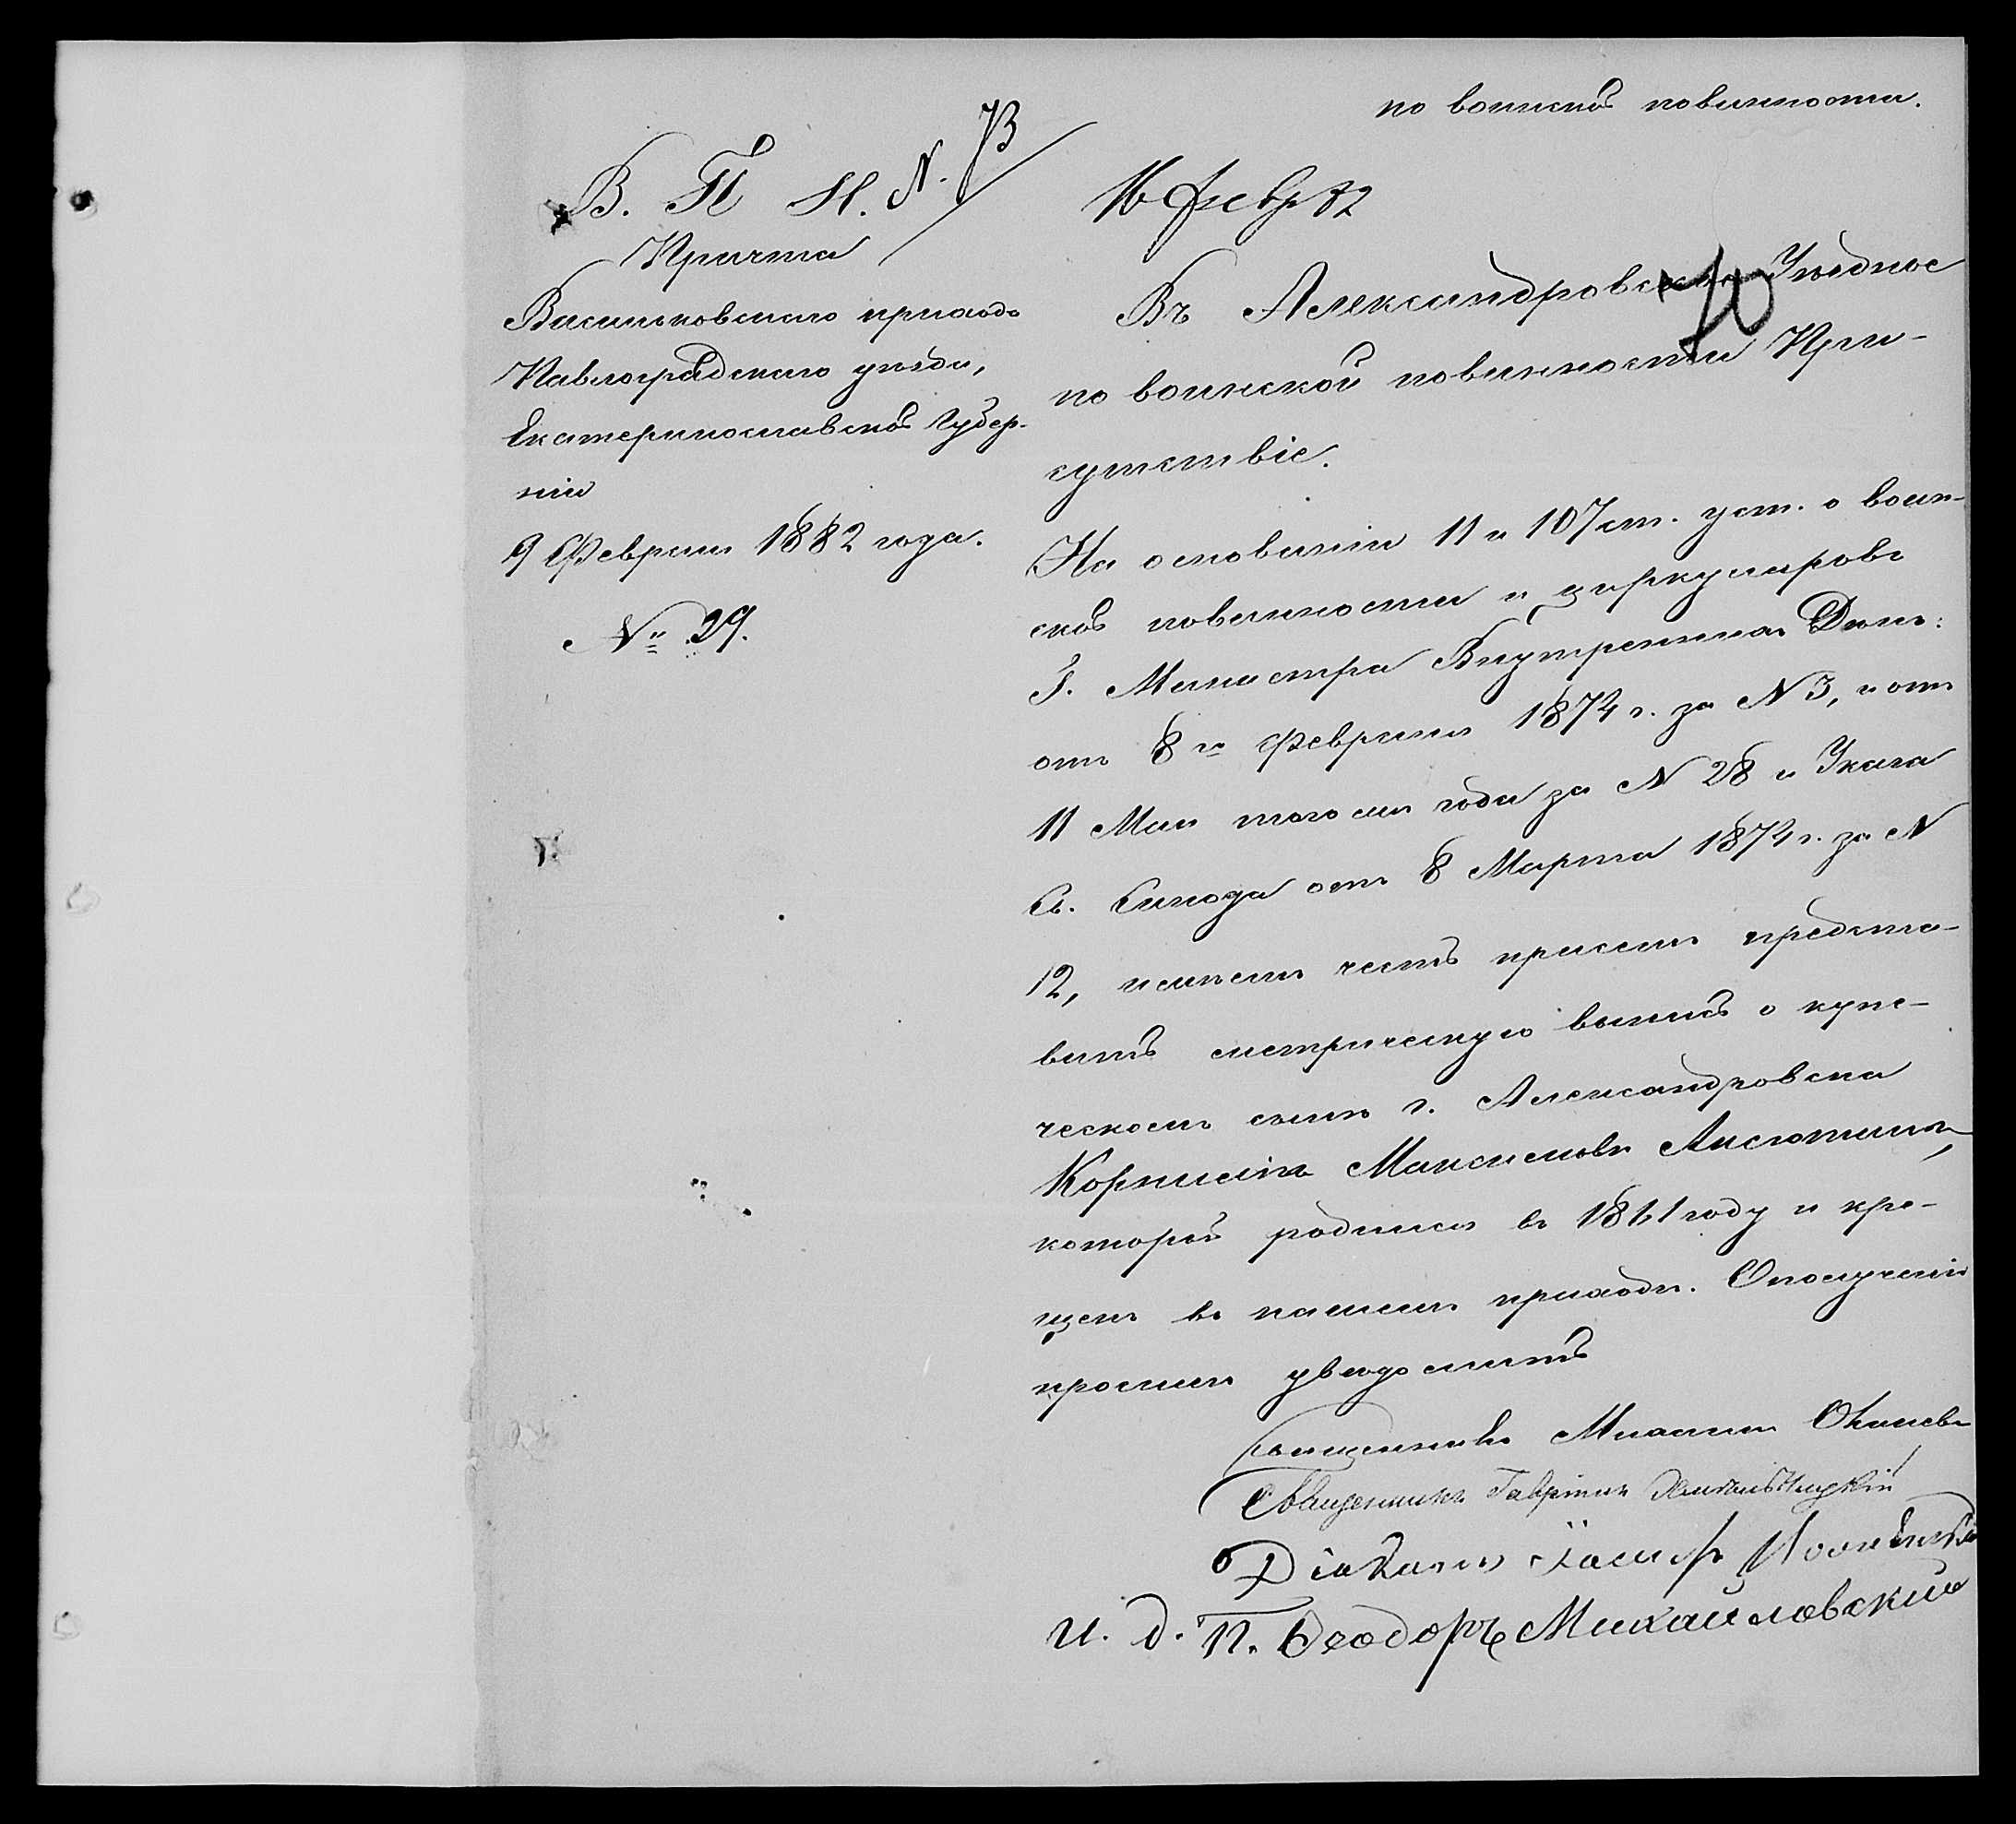 по воинской повинности.
В. П. И. N. 73
16 Февр 82
Причта
Васильковскаго прихода
Павлоградскаго уѣзда,
Екатеринославской Губер-
ніи
9 Февраля 1882 года.
№ 29.
70
Въ Александровское Уѣздное
по воинской повинности При-
сутствіе.
На основаніи 11 и 107 ст. уст. о воин-
ской повинности и циркуляровъ
Г. Министра Внутреннихъ Дѣлъ:
отъ 8го Февраля 1874 г. за N 3, и отъ
11 Мая того же года за N 28 и Указа
С. Синода отъ 8 Марта 1874 г. за N
12, имѣемъ честь при семъ предста-
вить метрическую выпись о купе-
ческомъ сынѣ г. Александровска
Корниліѣ Максимовѣ Аксютинѣ,
который родился въ 1861 году и кре-
щенъ въ нашемъ приходѣ. О полученіи
просимъ увѣдомить
Священникъ Михаилъ
Священникъ Гавріилъ
Діаконъ Іосифъ
И. д. П. Ѳеодоръ Михайловскій